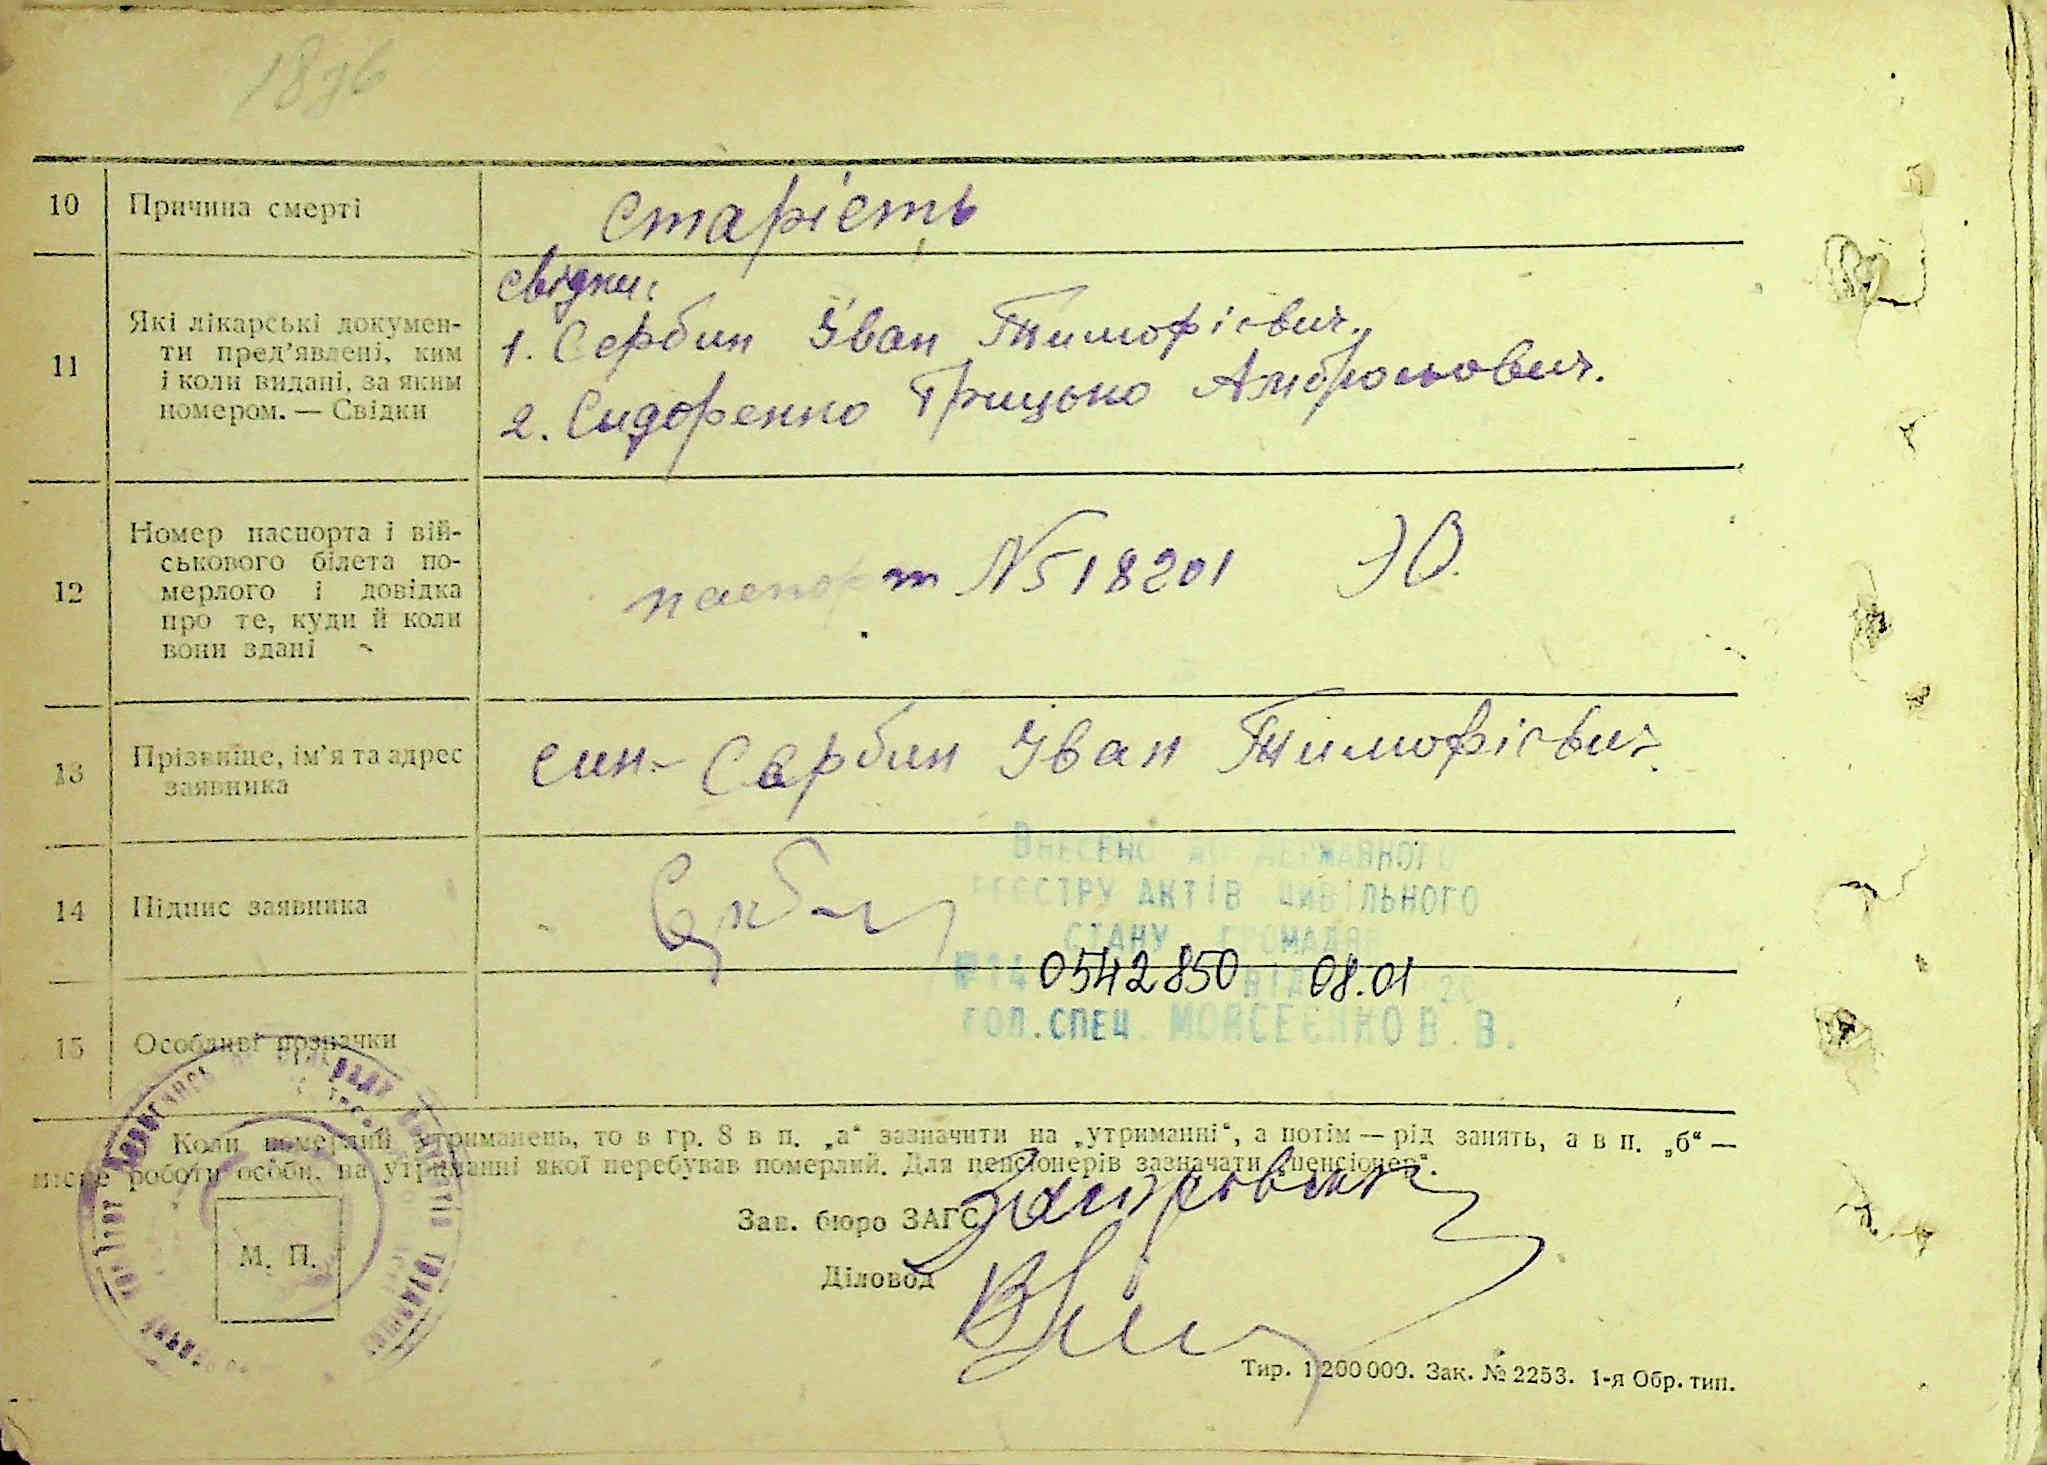 10 Причина смерті старість
11 Які лікарські докумен-
ти пред’явлені, ким
і коли видані, за яким
номером. — Свідки
свідки:
1. Сербин Іван Тимофієвич.
2. Сидоренко Грицько Амбросьович.
12 Номер паспорта і вій-
ськового білета по-
мерлого і довідка
про те, куди й коли
вони здані
паспорт № 518201 ЭО.
13 Прізвище, ім’я та адрес
заявника
син- Сербин Іван Тимофієвич.
14 Підпис заявника Сербин
ВНЕСЕНО ДО ДЕРЖАВНОГО
РЕЄСТРУ АКТІВ ЦИВІЛЬНОГО
СТАНУ ГРОМАДЯН
№14 0542850 ВІД 08.01 20
ГОЛ.СПЕЦ. МОЙСЕЄНКО В. В.
15 Особливі позначки
Коли померлий утриманець, то в гр. 8 в п. „а“ зазначити на „утриманні“, а потім — рід занять, а в п. „б“ —
місце роботи особи, на утриманні якої перебував померлий. Для пенсіонерів зазначати „пенсіонер“.
Зав. бюро ЗАГС
М. П.
Діловод
Тир. 1 200 000. Зак. № 2253. 1-я Обр. тип.